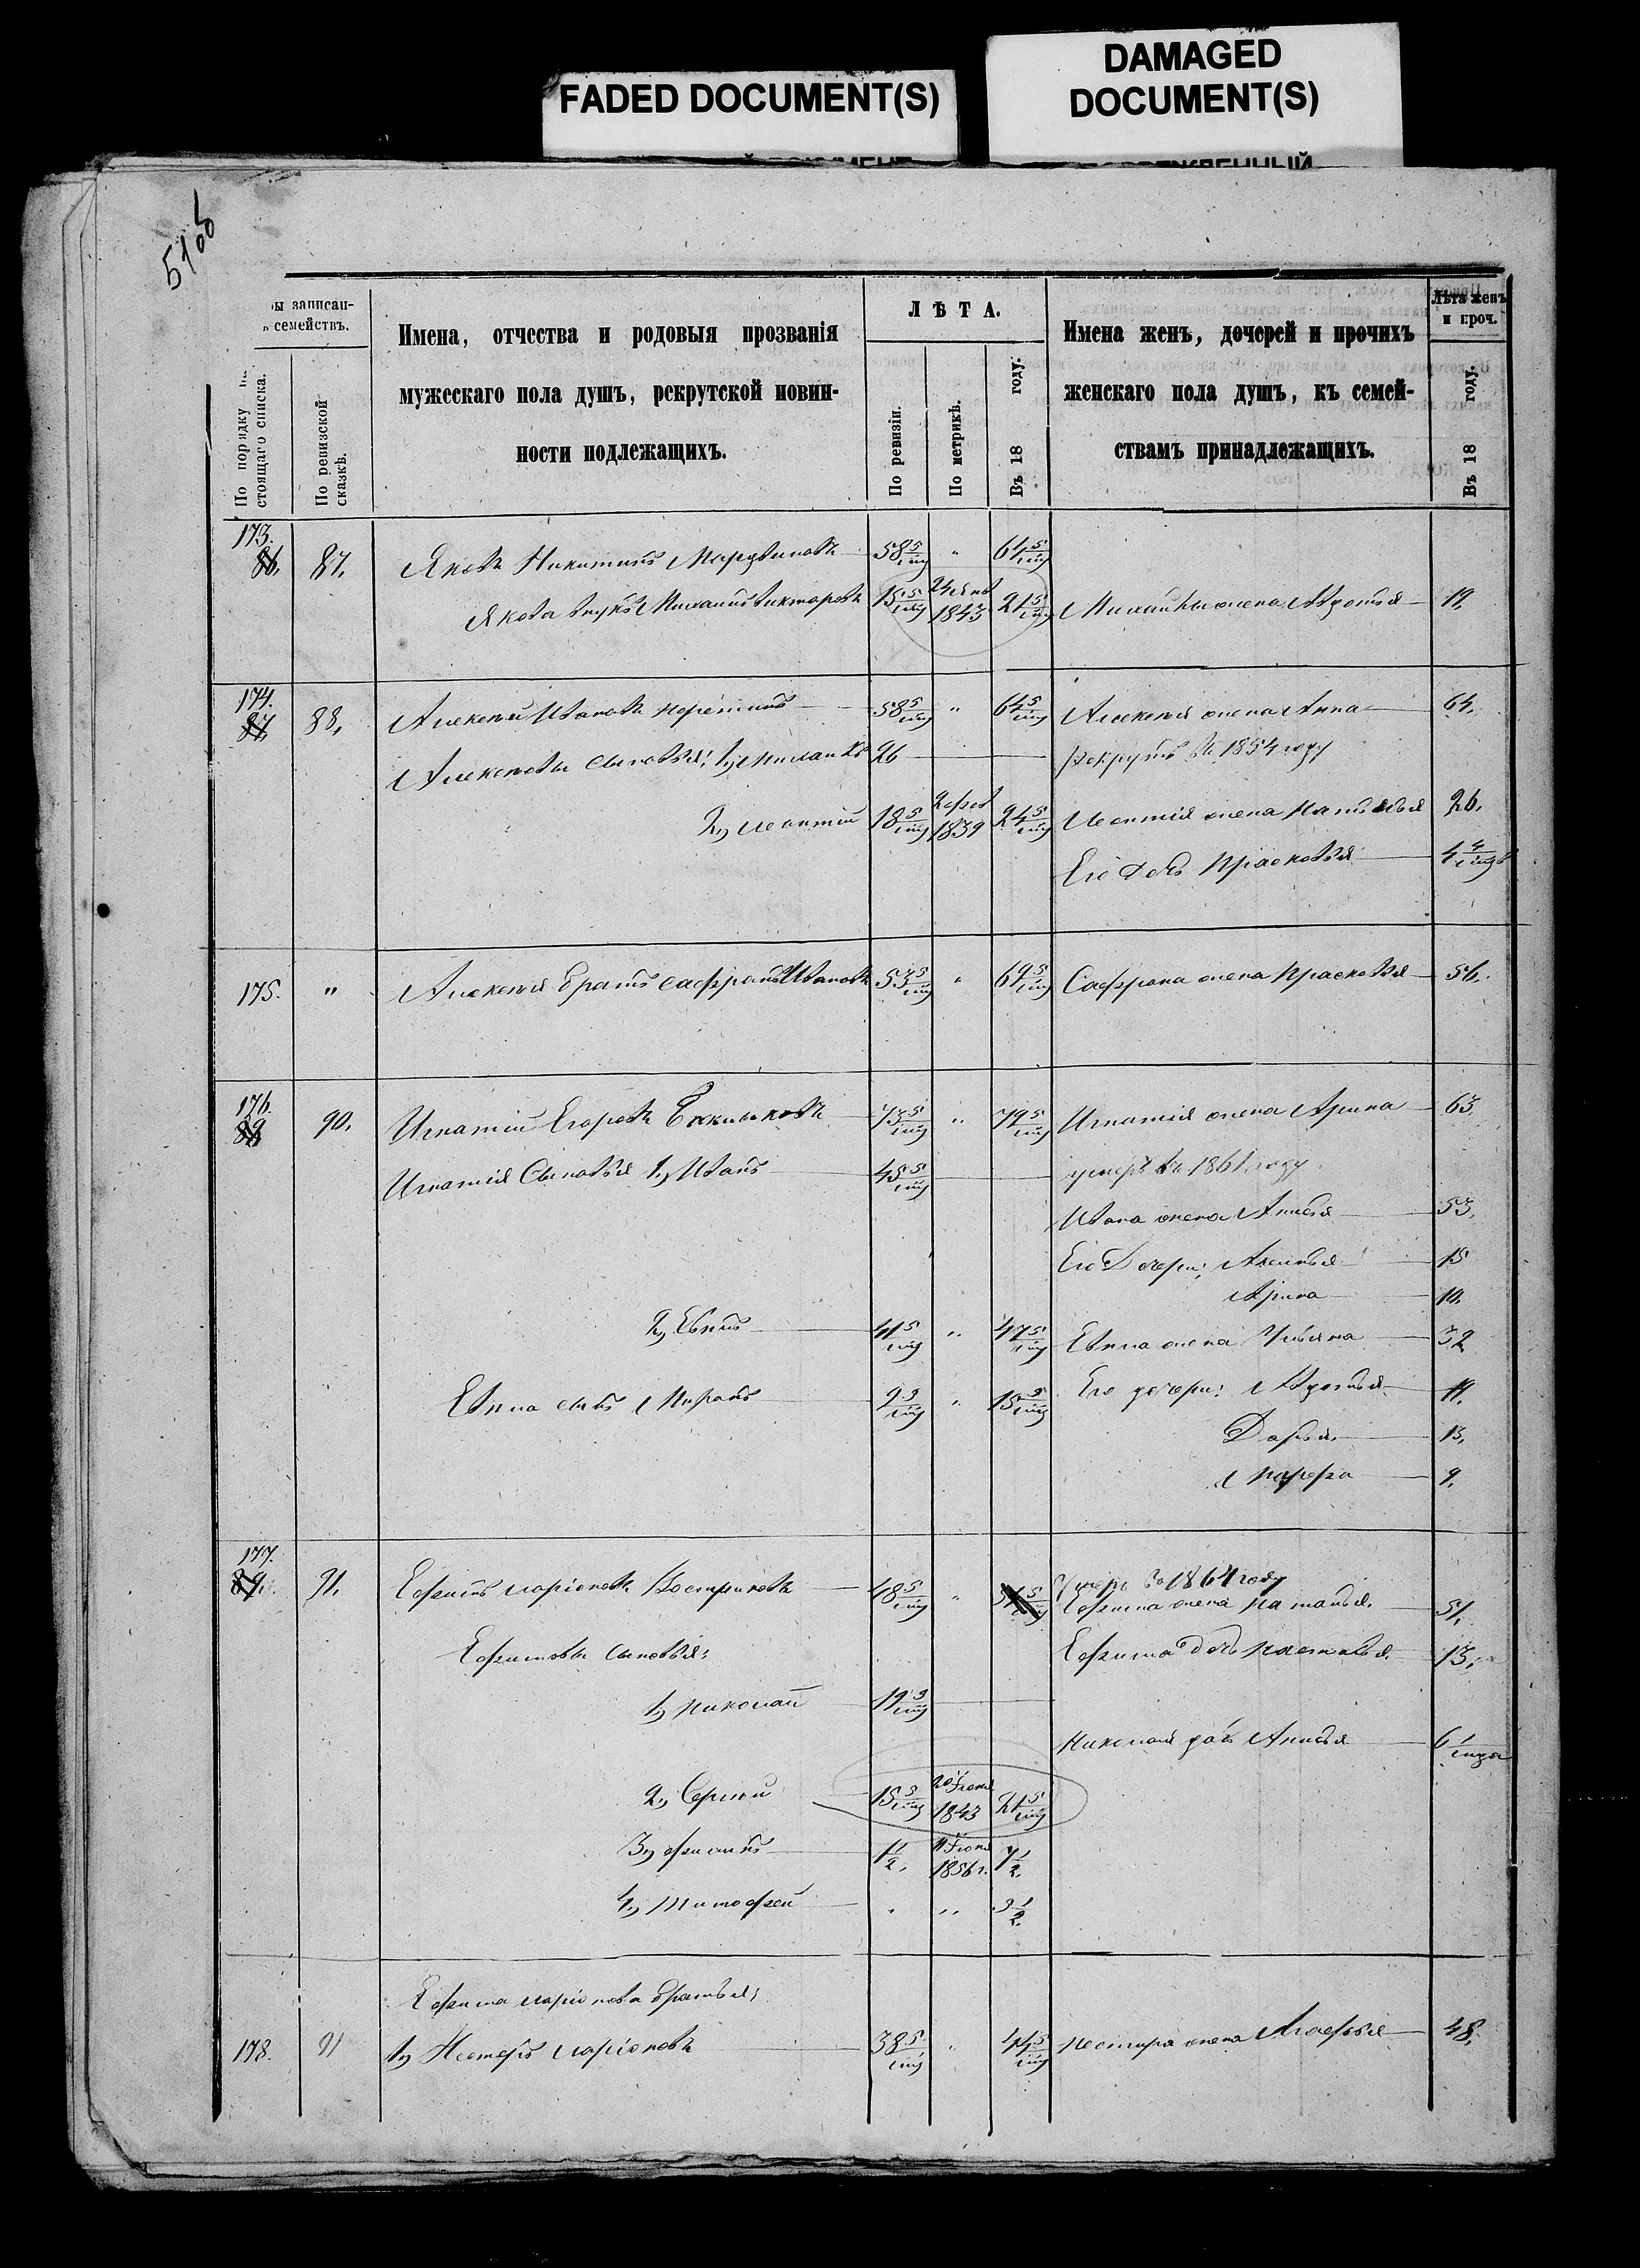 FADED DOCUMENT(S)
DAMAGED
DOCUMENT(S)
записан-
семействъ.
По порядку на-
стоящаго списка.
По ревизской
сказкѣ.
Имена, отчества и родовыя прозванія
мужескаго пола душъ, рекрутской повин-
ности подлежащихъ.
ЛѢТА.
По ревизіи.
По метрикѣ.
Въ 18 году.
Имена женъ, дочерей и прочихъ
женскаго пола душъ, къ семей-
ствамъ принадлежащихъ.
Лѣта женъ
и проч.
Въ 18 году.
173.
86. 87. Яковъ Никитинъ 58 5/мц " 64 5/мц
Якова внукъ Михаилъ Викторовъ 15 5/мц 1843 21 5/мц Михайлы жена Авдотья 19.
174.
87. 88. Алексѣй Ивановъ 58 5/мц " 64 5/мц Алексѣя жена Анна 64.
Алексѣевы сыновья: 1, Михаилъ 26 рекрутъ въ 1854 году
2, Леонтій 18 5/мц 2 фев 1839 24 5/мц Леонтія жена Наталья 26.
Его дочь Прасковья 4 4/мцъ
175. " Алексѣя братъ Сафронъ Ивановъ 53 5/мц " 69 5/мц Сафрона жена Прасковья 56.
176.
90. Игнатій Егоровъ 73 5/мц " 79 5/мц Игнатія жена Арина 63
Игнатія сыновья 1, Иванъ 45 5/мц умеръ въ 1861 году
Ивана жена Анисья 53.
Его дочери: Аксинья 15
Арина 10.
2, Евплъ 41 5/мц " 47 5/мц Евпла жена Ульяна 32
Евпла сынъ Миронъ 9 9/мц " 15 9/мц Его дочери: Авдотья 19.
Дарья 13.
Марфа 9.
177.
89. 91. Ефимъ Ларіоновъ Востриковъ 48 5/мц " Умеръ въ 1864 году
Ефима жена Наталья. 51.
Ефимовы сыновья: Ефима дочь Настасья. 13.
1, Николай 19 9/мц
Николая дочь Анисья 6 1/мца
2, Сергѣй 15 5/мц 20 Іюня 1843 21 5/мц
3, Филипъ 1 1/2. 11 Іюня 1856 г. 7 1/2.
4, Тимофей " " 3 1/2.
Ефима Ларіонова братья:
178. 91 1, Нестеръ Ларіоновъ 38 5/мц " 44 5/мц Нестера жена Агафья 48.